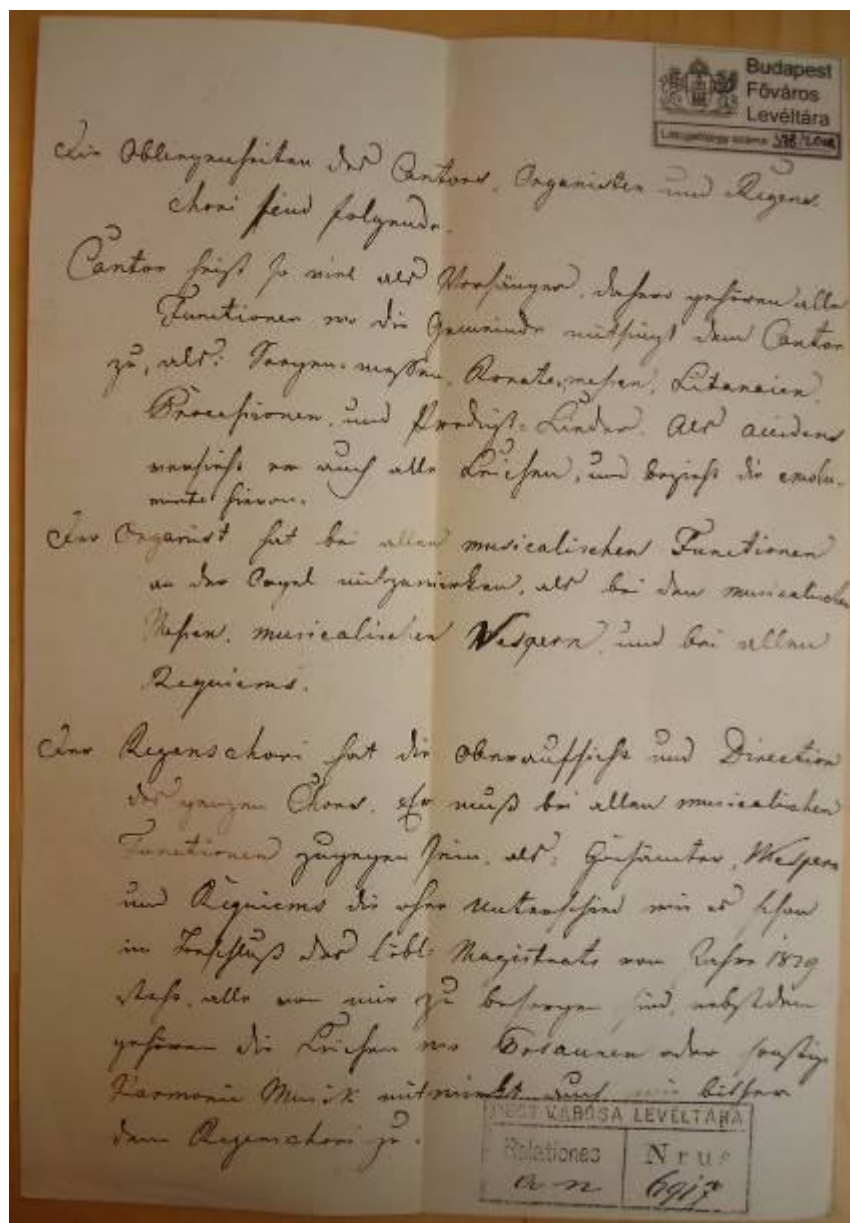 Budapest
Főváros
Levéltára
Die Obliegenheiten des Cantors, Organisten und Regens
chori sind folgende.
Cantor heißt so viel als Vorsänger, daher gehören alle
Functionen wo die Gemeinde mitsingt dem Cantor
zu, als: Seegen-messen, Rorate-messen, Litaneien,
Processionen, und Predigt-Lieder. Als accidens
versieht er auch alle Leichen, und bezieht die emolu-
mente hievon.
Der Organist hat bei allen musicalischen Functionen
an der Orgel mitzuwirken, als bei den musicalischen
Messen, musicalischen Vespern, und bei allen
Requiems.
Der Regenschori hat die Oberaufsicht und Direction
des ganzen Chors. Er muß bei allen musicalischen
Functionen zugegen sein, als: Hochämter, Vespern
und Requiems die ohne Unterschied wie es schon
im Beschluß des löbl: Magistrats vom Jahre 1829
steht, alle von mir zu besorgen sind, nebstdem
gehören die Leichen wo Posaunen oder sonstige
Harmonie Musik mitwirkt auch wie bisher
dem Regenschori zu.
PEST VÁROSA LEVÉLTÁRA
Relationes
a n
Nrus